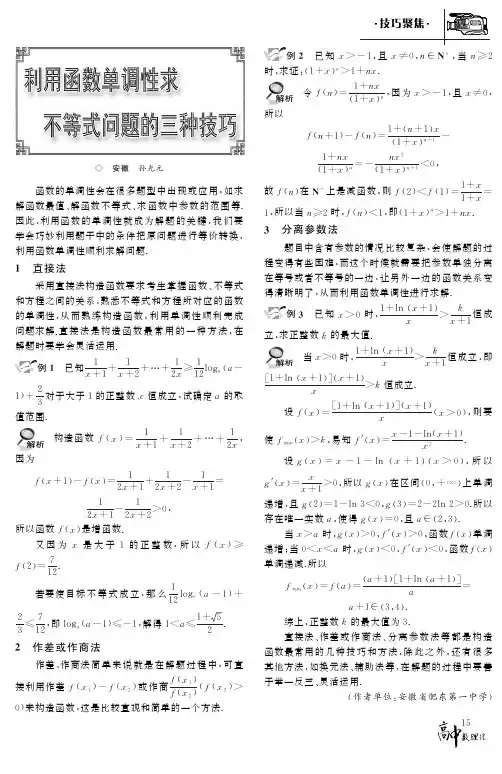 ·技巧聚焦·
利用函数单调性求
不等式问题的三种技巧
◇ 安徽 孙允元
函数的单调性会在很多题型中出现或应用,如求
解函数最值、解函数不等式、求函数中参数的范围等.
因此,利用函数的单调性就成为解题的关键.我们要
学会巧妙利用题干中的条件把原问题进行等价转换,
利用函数单调性顺利求解问题.
1 直接法
采用直接法构造函数要求考生掌握函数、不等式
和方程之间的关系,熟悉不等式和方程所对应的函数
的单调性,从而熟练构造函数,利用单调性顺利完成
问题求解.直接法是构造函数最常用的一种方法,在
解题时要学会灵活运用.
例1 已知 1/(x+1)+1/(x+2)+…+1/(2x)≥1/12 logₐ(a−
1)+2/3 对于大于1的正整数 x 恒成立,试确定 a 的取
值范围.
解析 构造函数 f(x)=1/(x+1)+1/(x+2)+…+1/(2x),
因为
f(x+1)−f(x)=1/(2x+1)+1/(2x+2)−1/(x+1)=
1/(2x+1)−1/(2x+2)>0,
所以函数 f(x)是增函数.
又因为 x 是大于1的正整数,所以 f(x)≥
f(2)=7/12.
若要使目标不等式成立,那么 1/12 logₐ(a−1)+
2/3≤7/12,即 logₐ(a−1)≤−1,解得 1<a≤(1+√5)/2.
2 作差或作商法
作差、作商法简单来说就是在解题过程中,可直
接利用作差 f(x₁)−f(x₂)或作商 f(x₁)/f(x₂)(f(x₂)>
0)来构造函数,这是比较直观和简单的一个方法.
例2 已知 x>−1,且 x≠0,n∈N*,当 n≥2
时,求证:(1+x)ⁿ>1+nx.
解析 令 f(n)=(1+nx)/(1+x)ⁿ,因为 x>−1,且 x≠0,
所以
f(n+1)−f(n)=(1+(n+1)x)/(1+x)ⁿ⁺¹−
(1+nx)/(1+x)ⁿ=−nx²/(1+x)ⁿ⁺¹<0,
故 f(n)在 N* 上是减函数,则 f(2)<f(1)=(1+x)/(1+x)=
1,所以当 n≥2 时,f(n)<1,即(1+x)ⁿ>1+nx.
3 分离参数法
题目中含有参数的情况比较复杂,会使解题的过
程变得有些困难,而这个时候就需要把参数单独分离
在等号或者不等号的一边,让另外一边的函数关系变
得清晰明了,从而利用函数单调性进行求解.
例3 已知 x>0 时,(1+ln (x+1))/x>k/(x+1)恒成
立,求正整数 k 的最大值.
解析 当 x>0 时,(1+ln (x+1))/x>k/(x+1)恒成立,即
[1+ln (x+1)](x+1)/x>k 恒成立.
设 f(x)=[1+ln (x+1)](x+1)/x(x>0),则要
使 fₘᵢₙ(x)>k,易知 f′(x)=(x−1−ln(x+1))/x².
设 g(x)=x−1−ln (x+1)(x>0),所以
g′(x)=x/(x+1)>0,所以 g(x)在区间(0,+∞)上单调
递增,且 g(2)=1−ln 3<0,g(3)=2−2ln 2>0.所以
存在唯一实数 a,使得 g(x)=0,且 a∈(2,3).
当 x>a 时,g(x)>0,f′(x)>0,函数 f(x)单调
递增;当 0<x<a 时,g(x)<0,f′(x)<0,函数 f(x)
单调递减.所以
fₘᵢₙ(x)=f(a)=(a+1)[1+ln (a+1)]/a=
a+1∈(3,4).
综上,正整数 k 的最大值为3.
直接法、作差或作商法、分离参数法等都是构造
函数最常用的几种技巧和方法,除此之外,还有很多
其他方法,如换元法、辅助法等,在解题的过程中要善
于举一反三、灵活运用.
(作者单位:安徽省肥东第一中学)
15
高中数理化